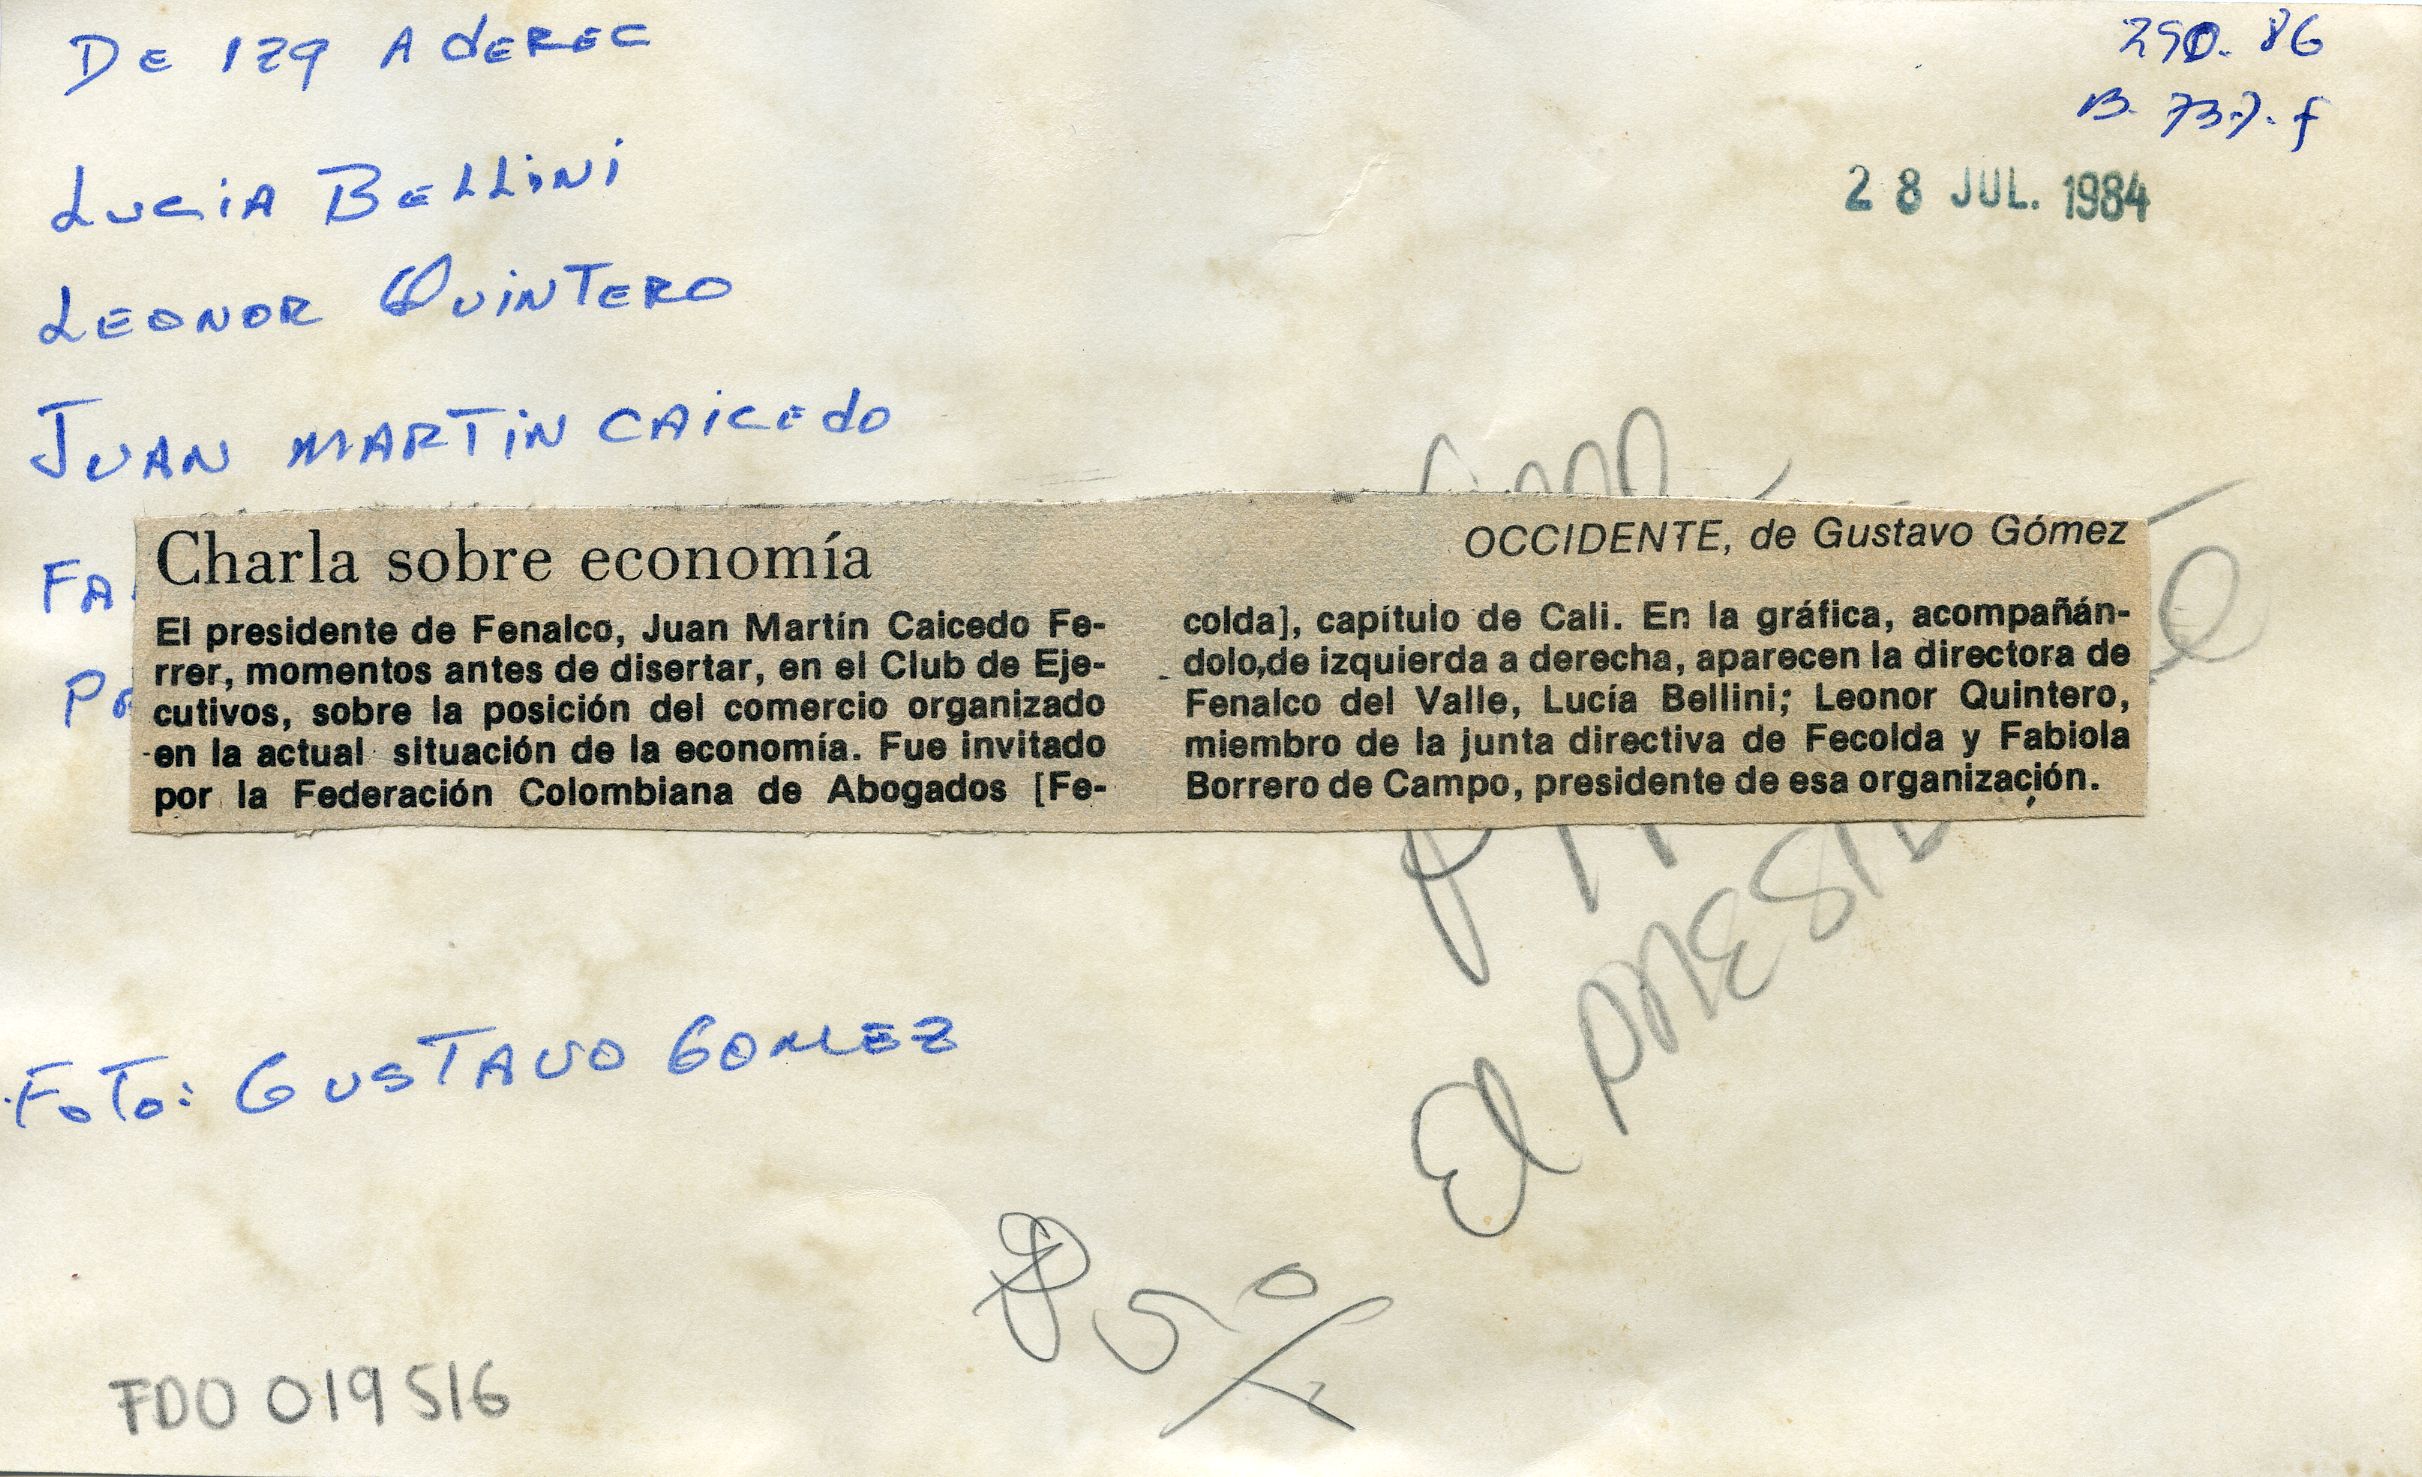 DE IZQ A DEREC
290.86
B.737.f
28 JUL. 1984
LUCIA BELLINI
LEONOR QUINTERO
JUAN MARTIN CAICEDO
FA
Charla sobre economía
OCCIDENTE, de Gustavo Gómez
El presidente de Fenalco, Juan Martín Caicedo Fe-
rrer, momentos antes de disertar, en el Club de Eje-
cutivos, sobre la posición del comercio organizado
en la actual situación de la economía. Fue invitado
por la Federación Colombiana de Abogados [Fe-
colda], capítulo de Cali. En la gráfica, acompañán-
dolo,de izquierda a derecha, aparecen la directora de
Fenalco del Valle, Lucía Bellini; Leonor Quintero,
miembro de la junta directiva de Fecolda y Fabiola
Borrero de Campo, presidente de esa organización.
El PRESID
FOTO: GUSTAVO GOMEZ
85%
FDO 019516